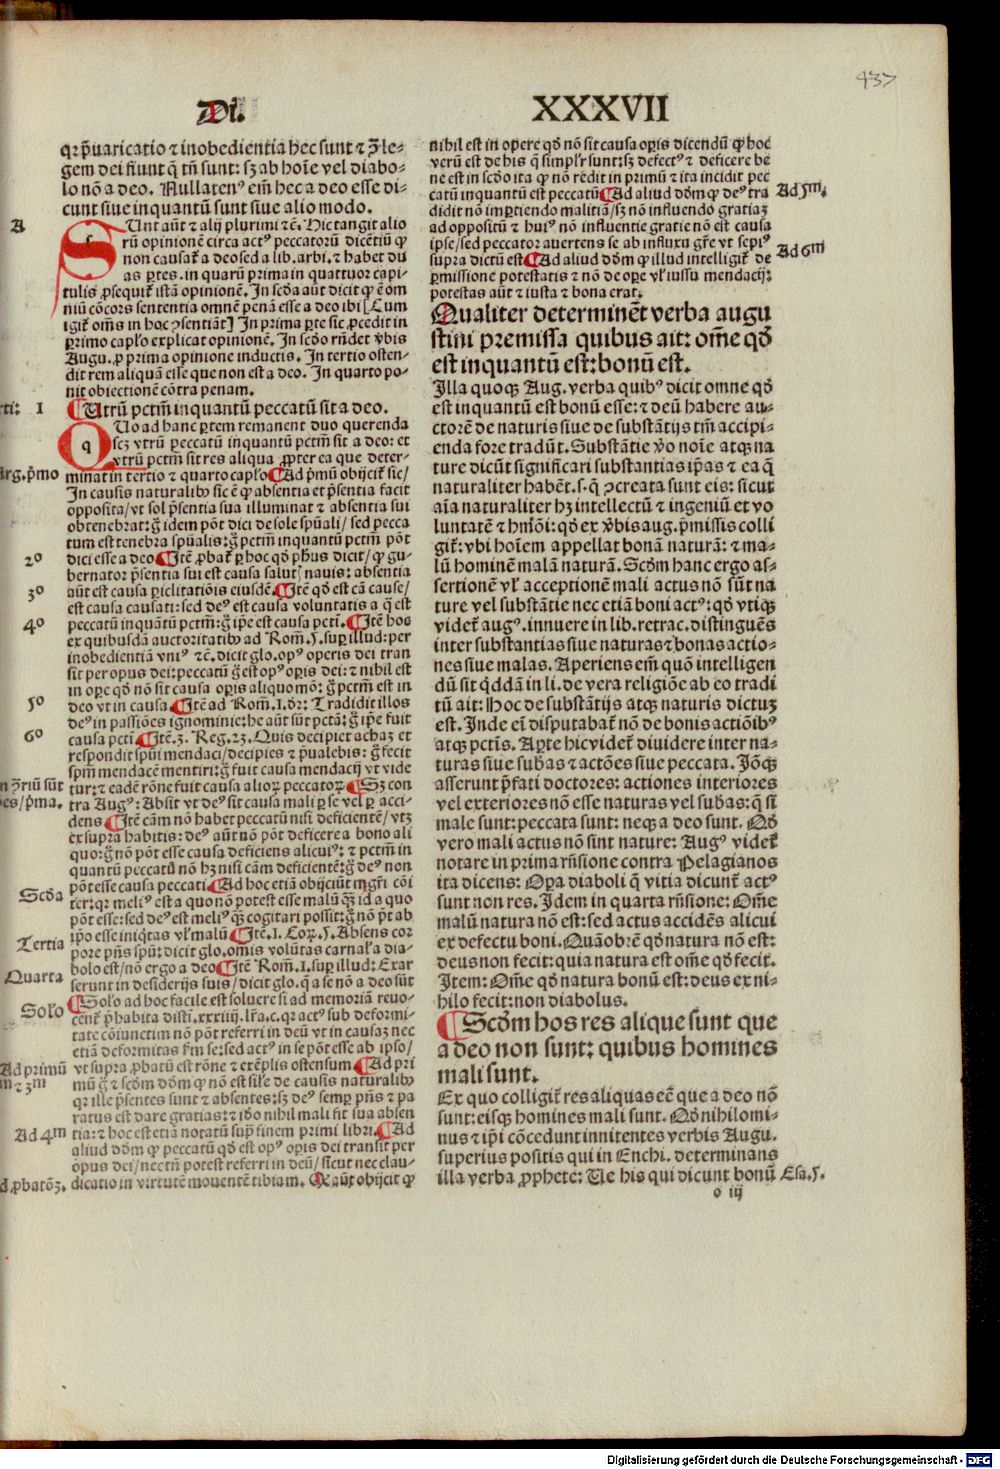 437
Di. XXXVII
qr p̄uaricatio ⁊ inobedientia hec sunt ⁊ p̄ le-
gem dei fiunt q̄ tn̄ sunt: sꝫ ab hoīe vel diabo-
lo nō a deo. Nullatenꝰ em̄ hec a deo esse di-
cunt siue inquantū sunt siue alio modo.
A
SUnt aūt ⁊ alij plurimi ⁊c̄. Hic tangit alio
rū opinionē circa actꝰ peccatorū dicētiū ꝙ
non causāt a deo sed a lib. arbi. ⁊ habet du
as ꝑtes. in quarū prima in quattuor capi-
tulis ꝓsequit̄ istā opinionē. In scd̄a aūt dicit ꝙ ē om
niū cōcors sententia omnē penā esse a deo ibi [Cum
igit̄ om̄s in hoc ꝯsentiāt] In prima ꝑte sic ꝓcedit in
ꝑrimo capl̓o explicat opinionē. In scd̄o rn̄det v̓bis
Augu. ꝓ prima opinione inductis. In tertio osten-
dit rem aliquā esse que non est a deo. In quarto po-
nit obiectionē cōtra penam.
1
¶Utrū pctm̄ inquantū peccatū sit a deo.
QUo ad hanc ꝑtem remanent duo querenda
scꝫ vtrū peccatū inquantū pctm̄ sit a deo: et
vtrū pctm̄ sit res aliqua ꝓpter ea que deter-
minat in tertio ⁊ quarto capl̓o ¶Ad p̄mū obijcit̄ sic/
In causis naturalibꝰ sic ē ꝙ absentia et p̄sentia facit
opposita/ vt sol p̄sentia sua illuminat ⁊ absentia sui
obtenebrat: g̊ idem pōt dici de sole spūali/ sed pecca
tum est tenebra spūalis: g̊ pctm̄ inquantū pctm̄ pōt
dici esse a deo ¶Itē ꝓbat̄ ꝑ hoc qd̄ ph̄us dicit/ ꝙ gu-
bernator p̄sentia sui est causa salutꝭ nauis: absentia
aūt est causa ꝑiclitatiōis eiusdē. ¶Itē qd̄ est cā cause/
est causa causati: sed deꝰ est causa voluntatis a q̄ est
peccatū inquantū pctm̄: g̊ ip̄e est causa pcti. ¶Itē hos
ex quibusdā auctoritatibꝰ ad Rom̄. 5. suꝑ illud: per
inobedientiā vniꝰ ⁊c̄. dicit glo. opꝰ operis dei tran
sit per opus dei: peccatū g̊ est opꝰ oꝑis dei: ⁊ nihil est
in oꝑe qd̄ nō sit causa oꝑis aliquo mō: g̊ pctm̄ est in
deo vt in causa. ¶Itē ad Rom̄. 1. dr̄: Tradidit illos
deꝰ in passiōes ignominie: he aūt sūt pctā: g̊ ip̄e fuit
causa pcti. ¶Itē. 3. Reg. 23. Quis decipiet achaꝫ et
respondit spūs mendaci/ decipies ⁊ p̄ualebis: g̊ fecit
spm̄ mendacē mentiri: g̊ fuit causa mendacij vt vide
tur: ⁊ eadē rōne fuit causa alioꝝ peccatoꝝ ¶Sꝫ con
tra Augꝰ: Absit vt deꝰ sit causa mali ꝑ se vel ꝑ acci-
dens ¶Itē cām nō habet peccatū nisi deficientē/ vtꝫ
ex supra habitis: deꝰ aūt nō pōt deficere a bono ali
quo: g̊ nō pōt esse causa deficiens alicuiꝰ: ⁊ pctm̄ in
quantū peccatū nō hꝫ nisi cām deficientē: g̊ deꝰ non
pōt esse causa peccati. ¶Ad hoc etiā obijciūt mgr̄i cōi
ter: qꝛ meliꝰ est a quo nō potest esse malū q̄ꝫ id a quo
pōt esse: sed deꝰ est meliꝰ q̄ꝫ cogitari possit: g̊ nō pt̄ ab
ip̄o esse iniq̄tas vl̓ malū ¶Itē. 1. Coꝝ. 5. Absens cor
pore pn̄s spū: dicit glo. om̄is volūtas carnal̓ a dia-
bolo est/ nō ergo a deo ¶Itē Rom̄. 1. suꝑ illud: Exar
serunt in desiderijs suis/ dicit glo. q̄ a se nō a deo sūt
¶Sol̓o ad hoc facile est soluere si ad memoriā reuo-
cent̄ p̄habita disti. xxxiiij. lr̄a. c. qꝛ actꝰ sub deformi-
tate cōiunctim nō pōt referri in deū vt in causaꝫ nec
etiā deformitas ẜm se: sed actꝰ in se pōt esse ab ipso/
vt supra ꝓbatū est rōne ⁊ exēplis ostensum ¶Ad pri
mū g̊ ⁊ scd̄m dd̄m ꝙ nō est sil̓e de causis naturalibꝰ
qꝛ ille p̄sentes sunt ⁊ absentes: sꝫ deꝰ semꝑ pn̄s ⁊ pa
ratus est dare gratias: ⁊ iō nihil mali fit sua absen
tia: ⁊ hoc est etiā notatū supͣ finem primi libri. ¶Ad
aliud dd̄m ꝙ peccatū qd̄ est opꝰ oꝑis dei transit per
opus dei/ nec tn̄ potest referri in deū/ sicut nec clau-
dicatio in virtutē mouentē tibiam. ¶Qꝛ aūt obijcit ꝙ
2o
3o
4o
5o
6o
Scd̄a
Tertia
Quarta
Sol̓o
Ad primū
Ad 4m
nihil est in opere qd̄ nō sit causa oꝑis dicendū ꝙ hoc
verū est de his q̄ simpl̓r sunt: sꝫ defectꝰ ⁊ deficere be
ne est in scd̄o ita ꝙ nō redit in primū ⁊ ita incidit pec
catū inquantū est peccatū ¶Ad aliud dd̄m ꝙ deꝰ tra
didit nō impertiendo malitiā/ sꝫ nō influendo gratiaꝫ
ad oppositū ⁊ huiꝰ nō influentie gratie nō est causa
ipse/ sed peccator auertens se ab influxu gr̄e vt sepiꝰ
supra dictū est ¶Ad aliud dd̄m ꝙ illud intelligit̄ de
ꝑmissione potestatis ⁊ nō de oꝑe vl̓ iussu mendacij:
potestas aūt ⁊ iusta ⁊ bona erat.
Ad 5m.
Ad 6m
Qualiter determinēt verba augu
stini premissa quibus ait: om̄e qd̄
est inquantū est: bonū est.
Illa quoqꝫ Aug. verba quibꝰ dicit omne qd̄
est inquantū est bonū esse: ⁊ deū habere au-
ctorē de naturis siue de substātijs tm̄ accipi-
enda fore tradūt. Substātie v̓o noīe atqꝫ na
ture dicūt significari substantias ip̄as ⁊ ea q̄
naturaliter habēt. s. q̄ ꝯcreata sunt eis: sicut
aīa naturaliter hꝫ intellectū ⁊ ingeniū et vo
luntatē ⁊ hm̄ōi: qd̄ ex v̓bis aug. p̄missis colli
git̄: vbi hoīem appellat bonā naturā: ⁊ ma-
lū hominē malā naturā. Scd̄m hanc ergo as-
sertionē vl̓ acceptionē mali actus nō sūt na
ture vel substātie nec etiā boni actꝰ: qd̄ vtiqꝫ
videt̄ augꝰ. innuere in lib. retrac. distinguēs
inter substantias siue naturas ⁊ bonas actio-
nes siue malas. Aperiens em̄ quō intelligen
dū sit q̄ddā in li. de vera religiōe ab eo tradi
tū ait: Hoc de substātijs atqꝫ naturis dictuꝫ
est. Inde em̄ disputabat̄ nō de bonis actiōibꝰ
atqꝫ pctīs. Aꝑte hic videt̄ diuidere inter na-
turas siue subas̄ ⁊ actōes siue peccata. Iōqꝫ
asserunt p̄fati doctores: actiones interiores
vel exteriores nō esse naturas vel subas̄: q̄ si
male sunt: peccata sunt: neqꝫ a deo sunt. Qd̄
vero mali actus nō sint nature: Augꝰ videt̄
notare in prima rn̄sione contra Pelagianos
ita dicens: Oꝑa diaboli q̄ vitia dicunt̄ actꝰ
sunt non res. Idem in quarta rn̄sione: Om̄e
malū natura nō est: sed actus accidēs alicui
ex defectu boni. Quāobrē qd̄ natura nō est:
deus non fecit: quia natura est om̄e qd̄ fecit.
Item: Om̄e qd̄ natura bonū est: deus ex ni-
hilo fecit: non diabolus.
¶Scd̄m hos res alique sunt que
a deo non sunt: quibus homines
mali sunt.
Ex quo colligit̄ res aliquas eē que a deo nō
sunt: eisqꝫ homines mali sunt. Qd̄ nihilomi-
nus ⁊ ip̄i cōcedunt innitentes verbis Augu.
superius positis qui in Enchi. determinans
illa verba ꝓphete: Ue his qui dicunt bonū
Esa. 5.
o iij
Digitalisierung gefördert durch die Deutsche Forschungsgemeinschaft - DFG